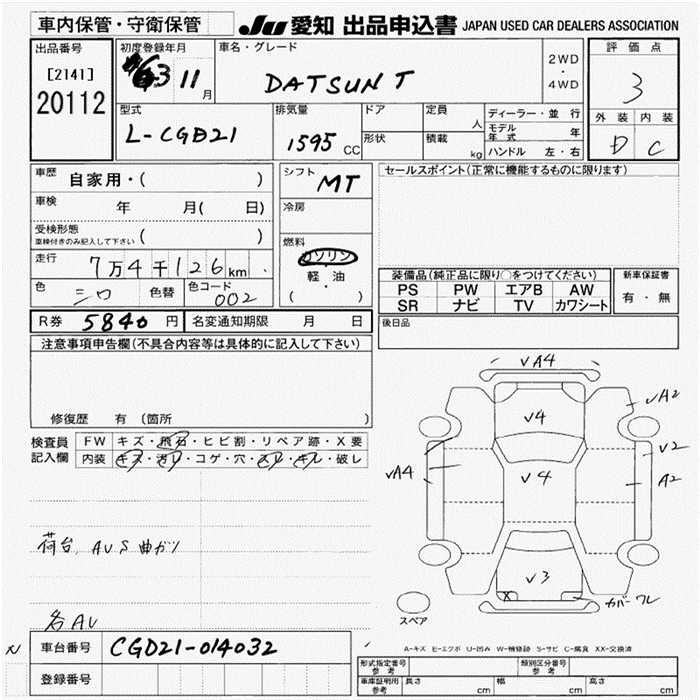 車内保管・守衛保管
JU 愛知 出品申込書 JAPAN USED CAR DEALERS ASSOCIATION
出品番号
[2141]
20112
初度登録年月
63 11 月
車名・グレード
DATSUN T
2WD
・
4WD
評価点
3
外装 内装
D C
型式
L-CGD21
排気量
1595 CC
ドア
形状
定員 人
積載 kg
ディーラー・並行
モデル年式 年
ハンドル 左・右
車歴 自家用・( )
車検 年 月( 日)
受検形態
車検付きのみ記入して下さい ( )
走行 7万4千126km
色 シロ 色替 色コード 002
シフト MT
冷房
燃料
ガソリン
・
軽・油
( )
セールスポイント(正常に機能するものに限ります)
装備品(純正品に限り○をつけてください)
PS PW エアB AW
SR ナビ TV カワシート
新車保証書
有・無
後日品
R券 5840 円 名変通知期限 月 日
注意事項申告欄(不具合内容等は具体的に記入して下さい)
修復歴 有(箇所 )
検査員記入欄
FW キズ・飛石・ヒビ割・リペア跡・X要
内装 キズ・汚レ・コゲ・穴・スレ・キレ・破レ
荷台 AUS 曲ガリ
各AU
√A4
√4
√A2
√2
A2
√A4
√4
√3
X
カバーワレ
スペア
A-キズ E-エクボ U-凹み W-補修跡 S-サビ C-腐食 XX-交換済
車台番号 CGD21-014032
登録番号
形式指定番号 参考
類別区分番号 参考
車庫証明用 参考 長さ cm 幅 cm 高さ cm